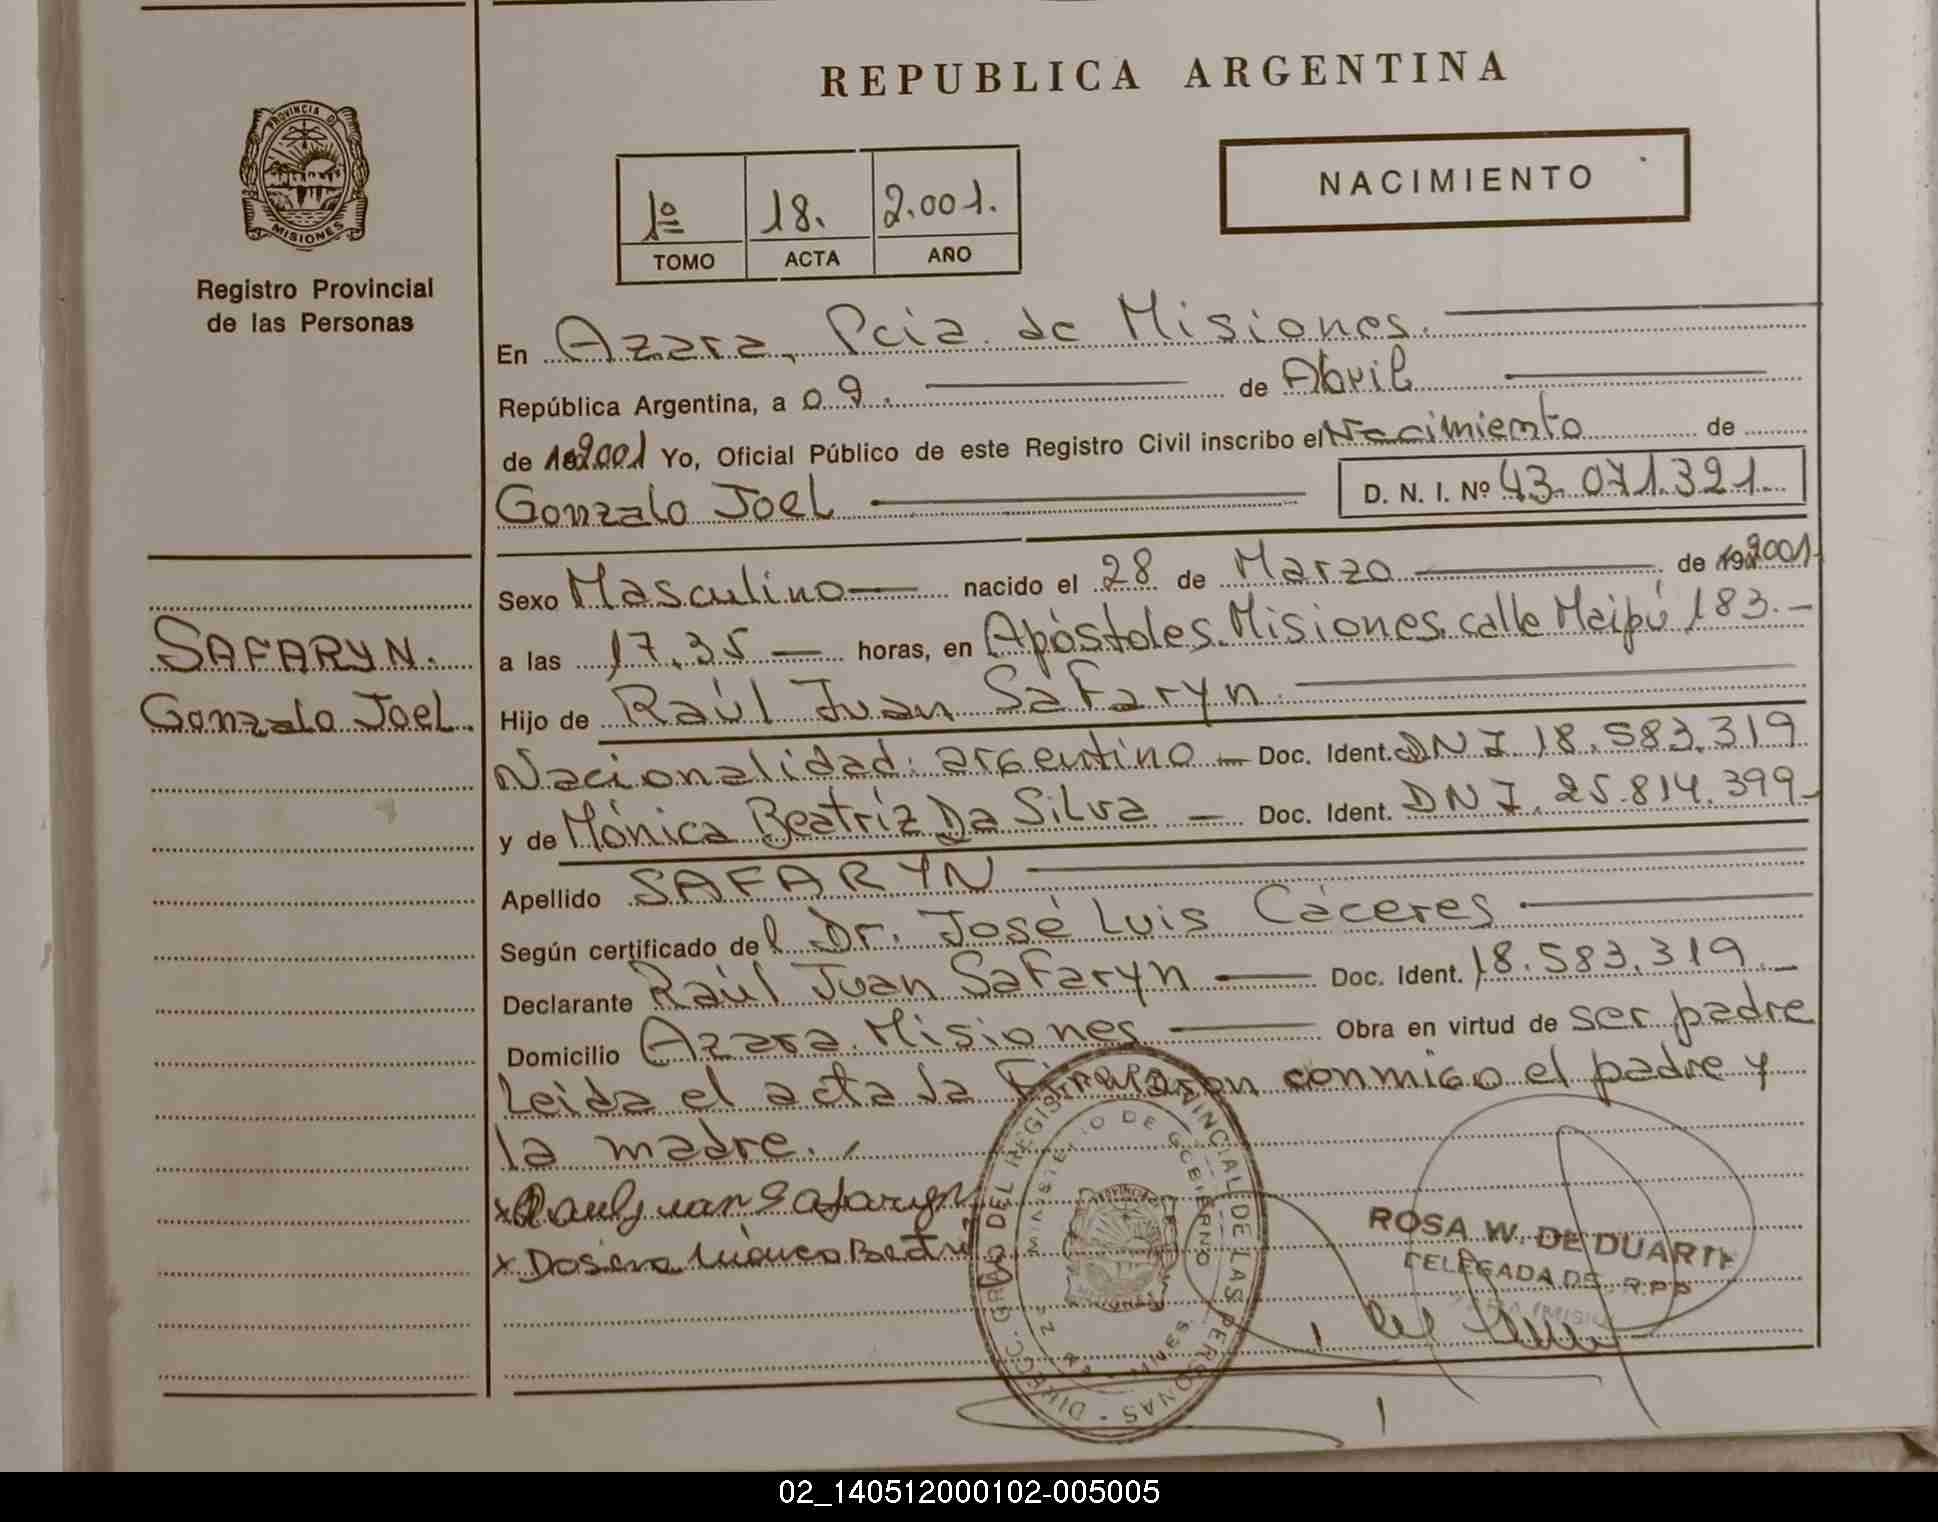 REPUBLICA ARGENTINA
PROVINCIA D
MISIONES
Registro Provincial
de las Personas
1º 18. 2.001.
TOMO ACTA AÑO
NACIMIENTO
En Azara, Pcia. de Misiones.
República Argentina, a 09. de Abril
de 2001 Yo, Oficial Público de este Registro Civil inscribo el Nacimiento de
Gonzalo Joel D. N. I. Nº 43.071.321.
Sexo Masculino nacido el 28 de Marzo de 2001
a las 17.35 horas, en Apóstoles. Misiones. calle Maipú 183.
SAFARYN.
Gonzalo Joel.
Hijo de Raúl Juan Safaryn.
Nacionalidad: argentino Doc. Ident. DNI 18.583.319
y de Mónica Beatríz Da Silva Doc. Ident. DNI. 25.814.399
Apellido SAFARYN
Según certificado del Dr. José Luis Cáceres
Declarante Raúl Juan Safaryn Doc. Ident. 18.583.319.
Domicilio Azara. Misiones Obra en virtud de ser padre
Leída el acta la Firmaron conmigo el padre y
la madre.
x Raul Juan Safaryn
x Dasilva Mónica Beatri
DIRECC. GRAL. DEL REGISTRO PROVINCIAL DE LAS PERSONAS
MINISTERIO DE GOBIERNO
PROVINCIA
MISIONES
ROSA W. DE DUARTE
DELEGADA DE R.P.P
02_140512000102-005005